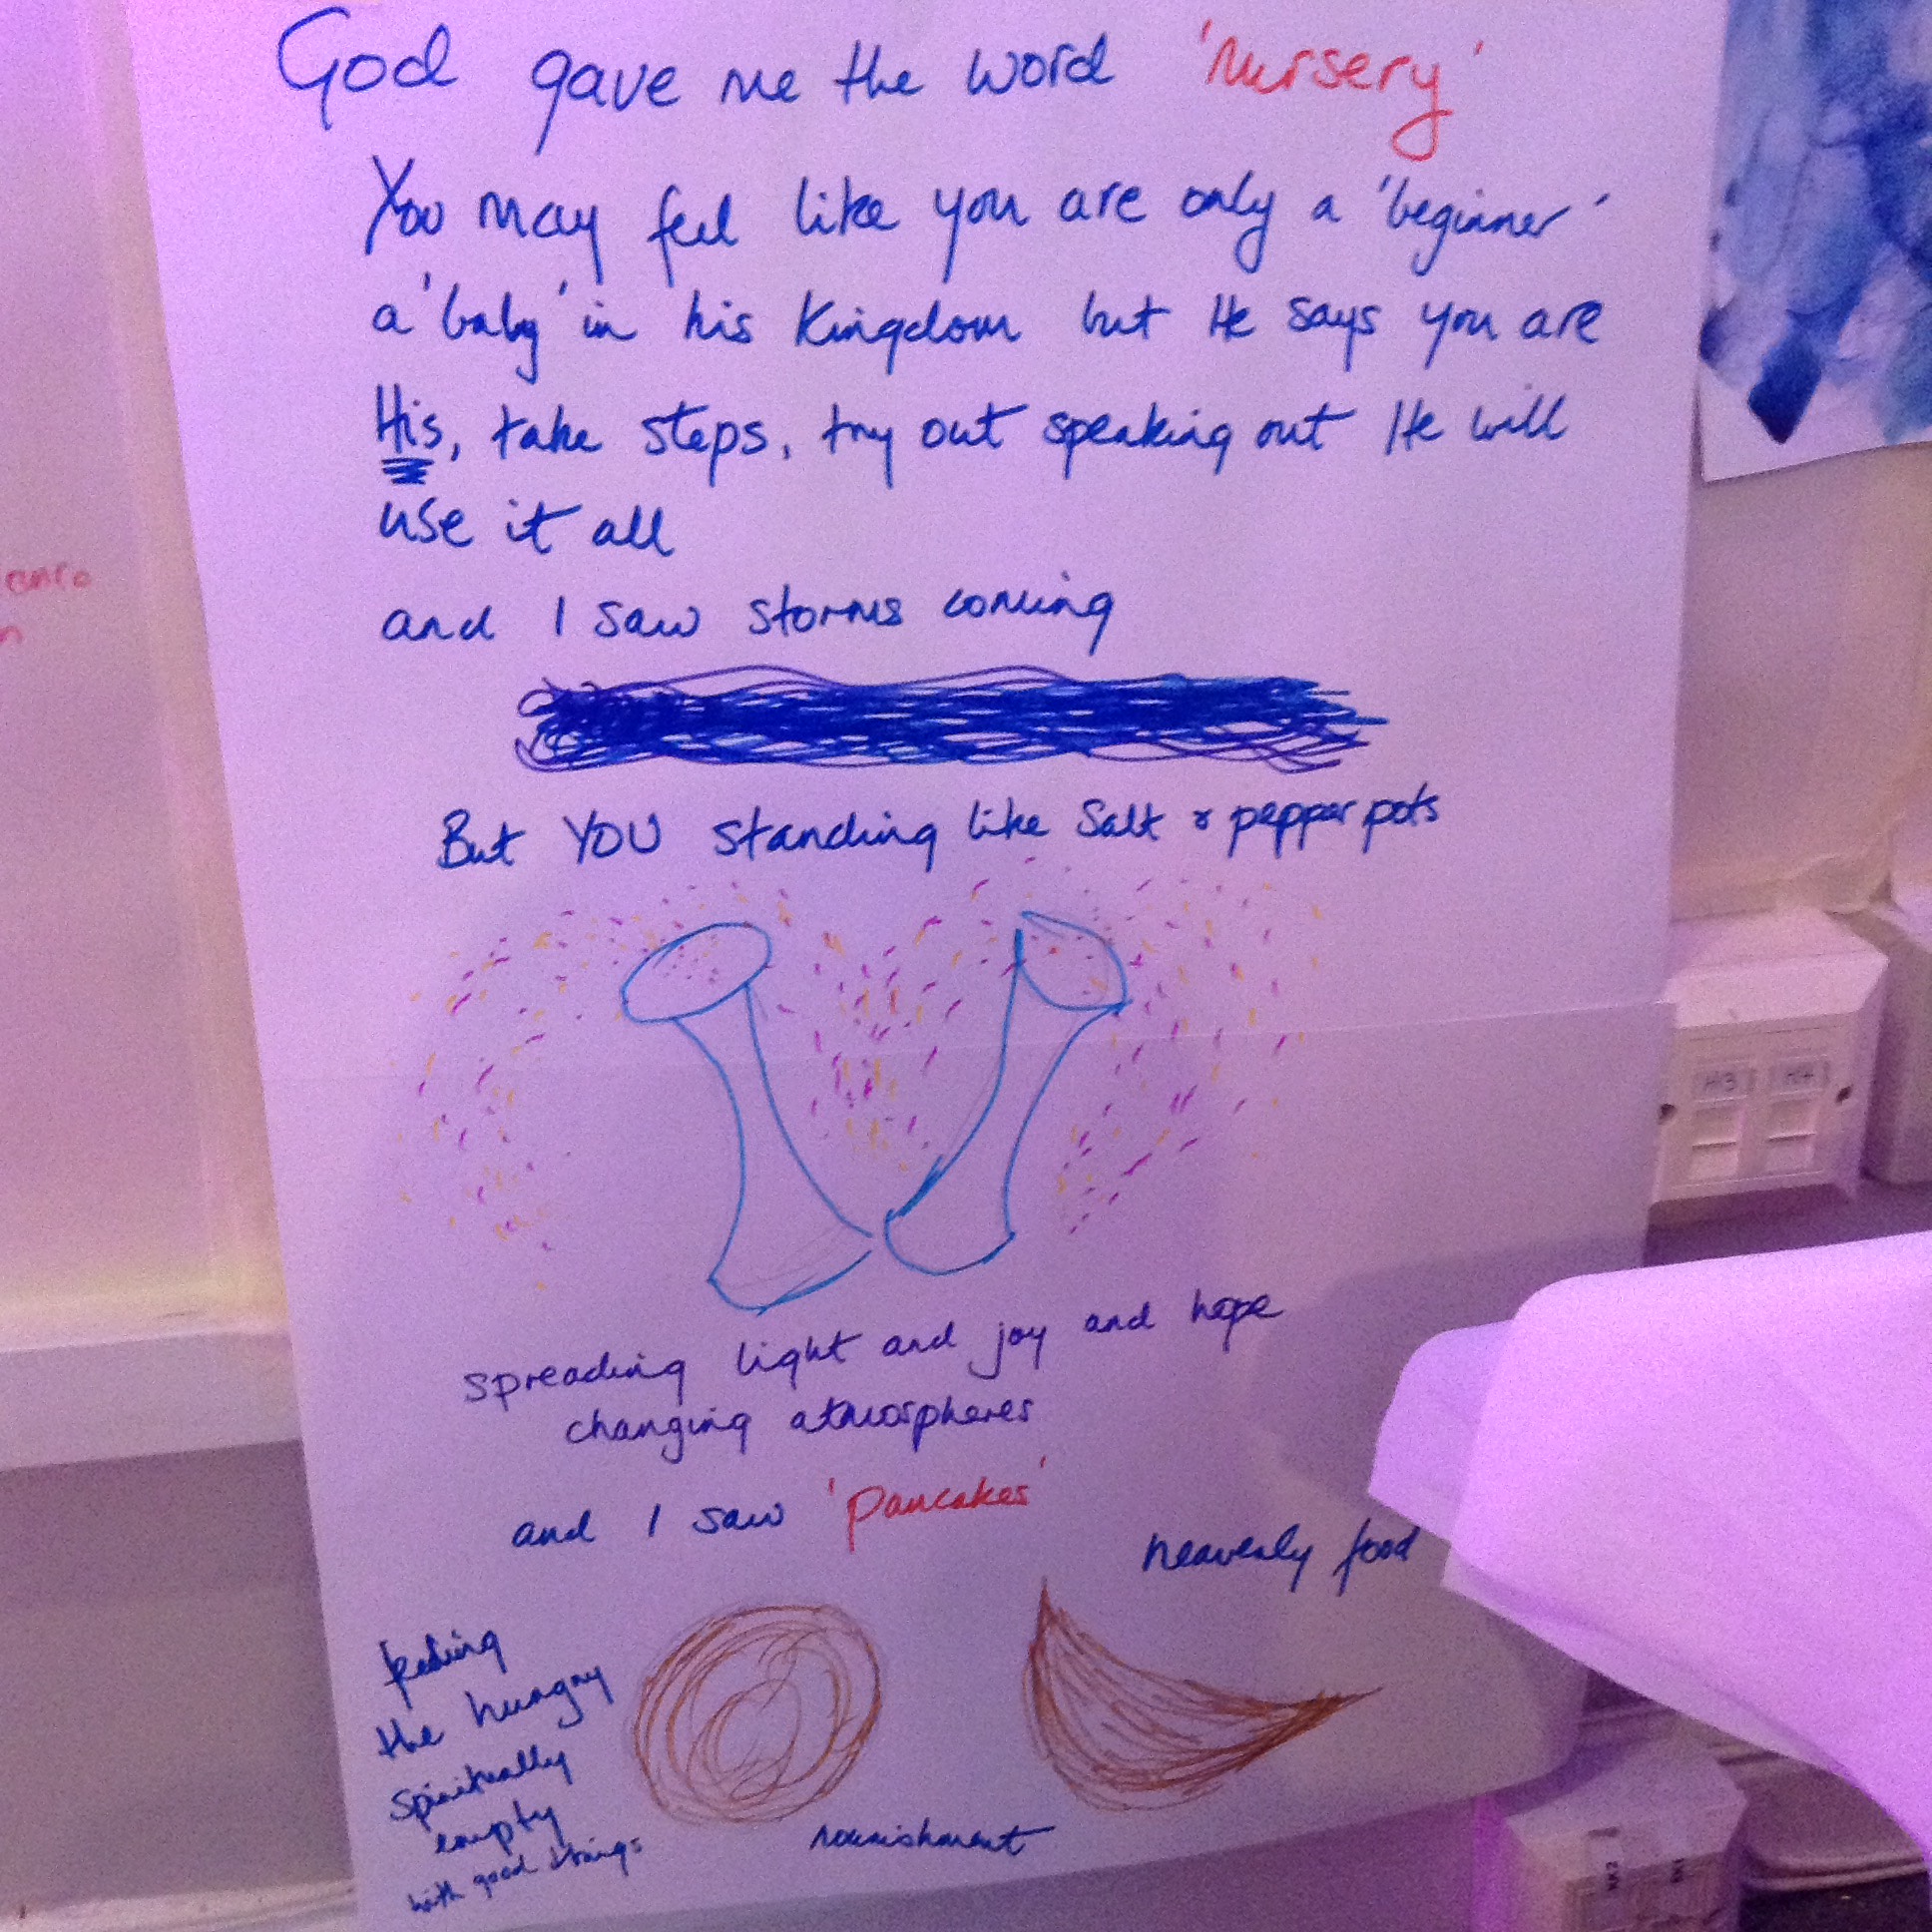 God gave me the word 'nursery'
You may feel like you are only a 'beginner'
a 'baby' in his Kingdom but He says you are
His, take steps, try out speaking out He will
use it all
and I saw storms coming
But YOU standing like Salt & pepper pots
spreading light and joy and hope
changing atmospheres
and I saw 'pancakes'
heavenly food
feeding
the hungry
spiritually
empty
with good things
nourishment
H3 H4